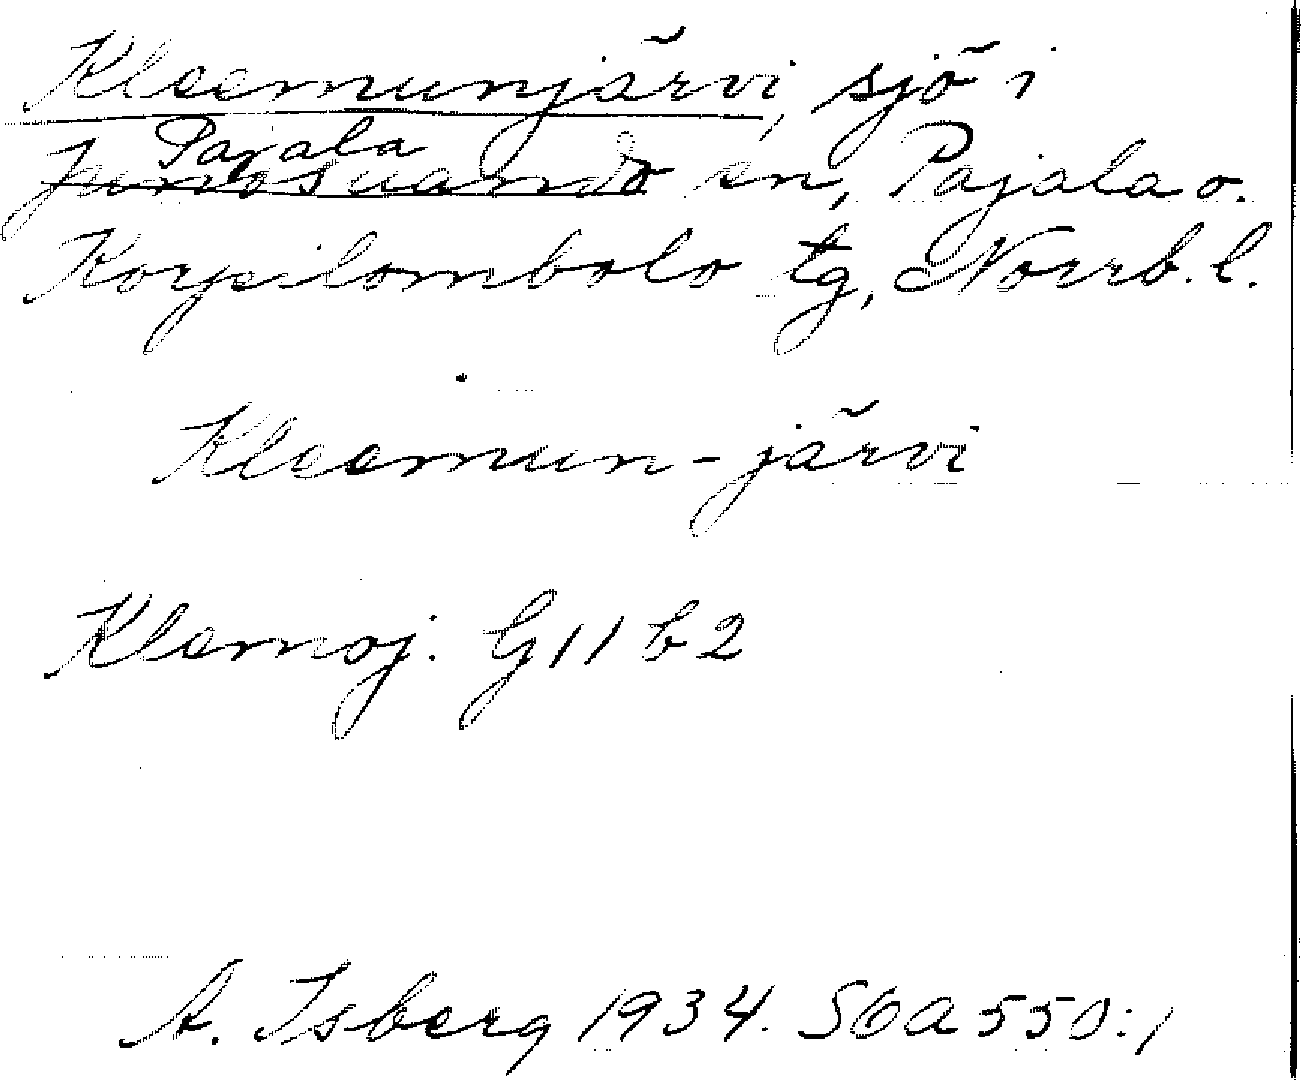 Kleemunjärvi, sjö i
Pajala
Junosuando sn, Pajala o.
Korpilombolo tg, Norrb. l.
Kleemun-järvi
Klemoj. G11 b2
A. Isberg 1934. SOA 550:1